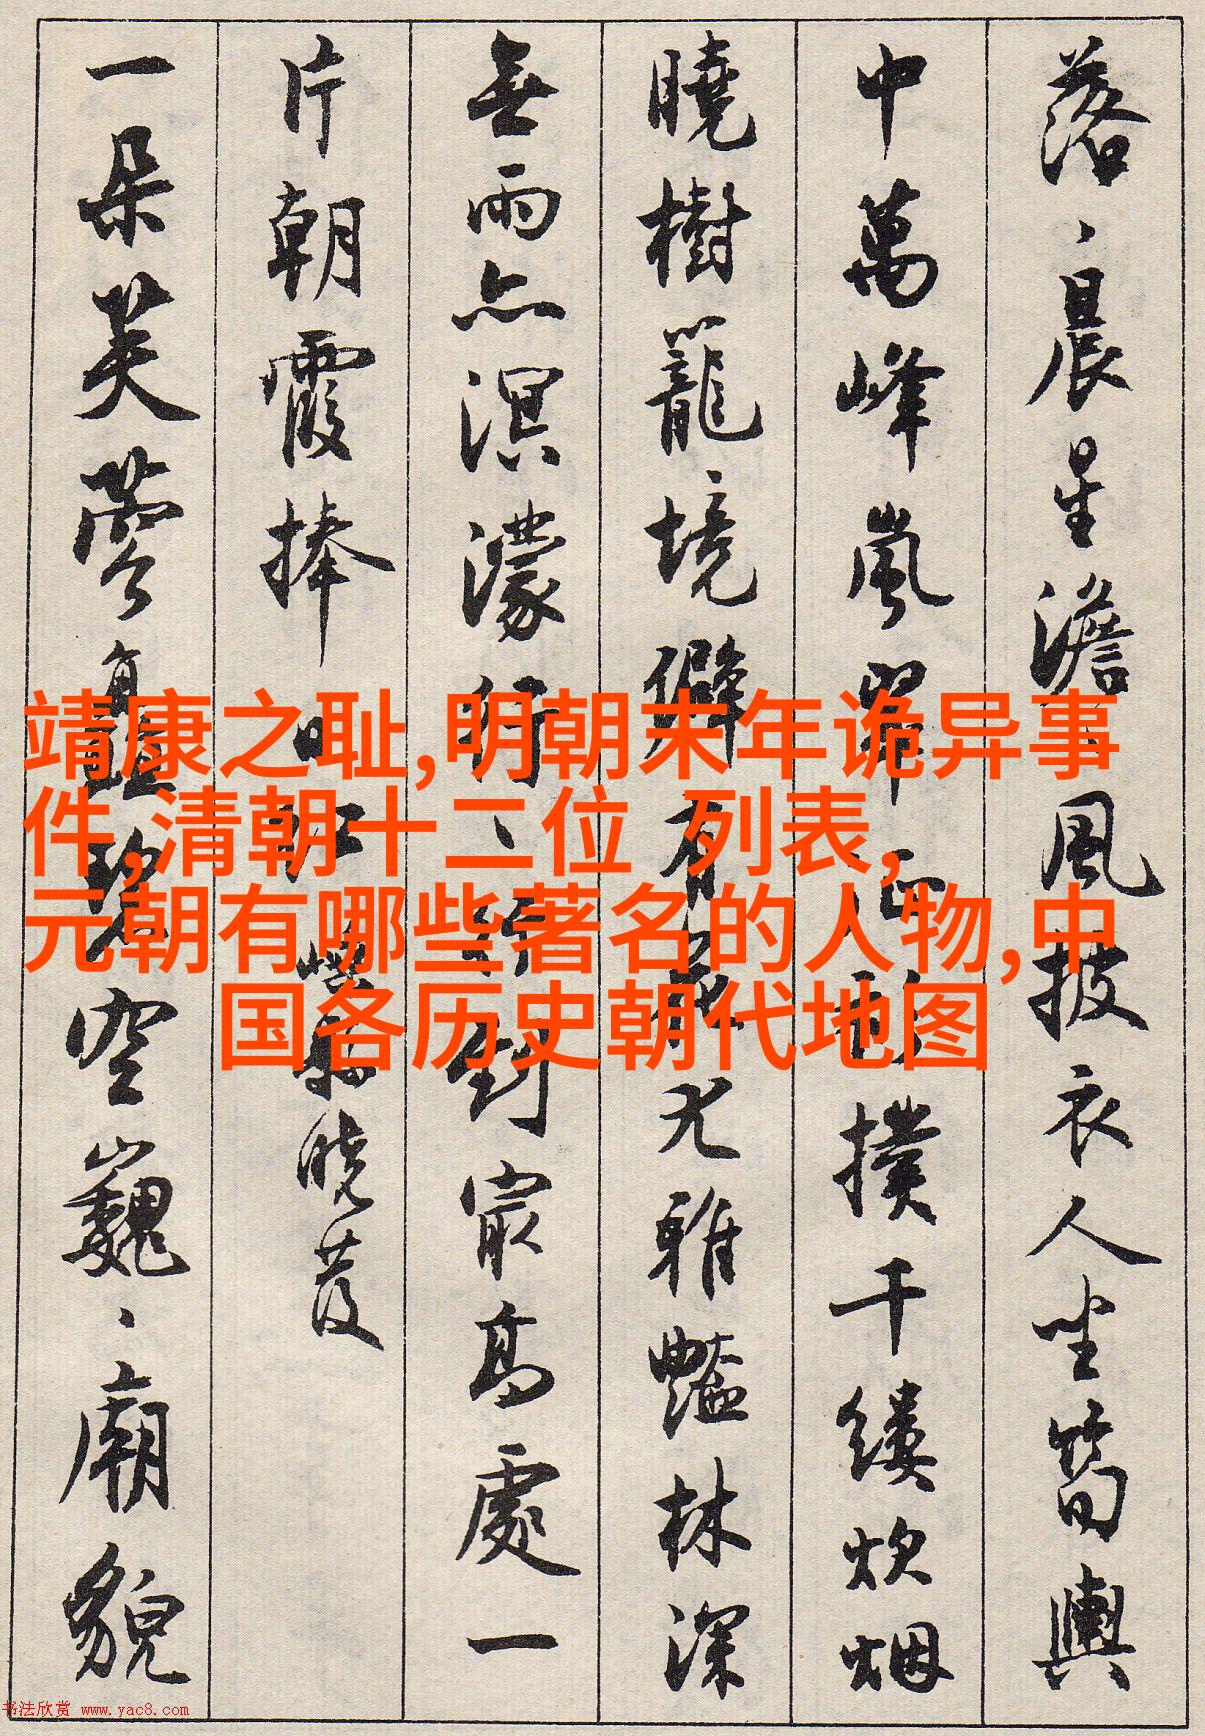 落、晨星澹、風披衣人坐笋輿
中萬峰嵐翠 撲千縷炊烟
曉樹籠、境僻有 尤雅豔林深
無雨亦溟濛行、 到最高處一
片朝霞捧日紅 曉發
一朵芙蓉矗碧空巍、廟貌
靖康之耻,明朝末年诡异事
件,清朝十二位 列表,
元朝有哪些著名的人物,中
国各历史朝代地图
书法欣赏 www.yac8.com